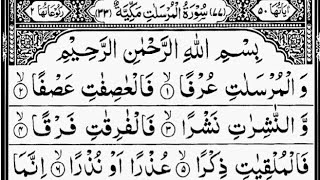 اٰيَاتُهَا ٥٠ (٧٧) سُوْرَةُ الْمُرْسَلٰتِ مَكِّيَّةٌ (٣٣) رُكُوْعَاتُهَا ٢
بِسْمِ اللّٰهِ الرَّحْمٰنِ الرَّحِيْمِ
وَالْمُرْسَلٰتِ عُرْفًا ۝١ فَالْعٰصِفٰتِ عَصْفًا ۝٢
وَّالنّٰشِرٰتِ نَشْرًا ۝٣ فَالْفٰرِقٰتِ فَرْقًا ۝٤
فَالْمُلْقِيٰتِ ذِكْرًا ۝٥ عُذْرًا اَوْ نُذْرًا ۝٦ اِنَّمَا